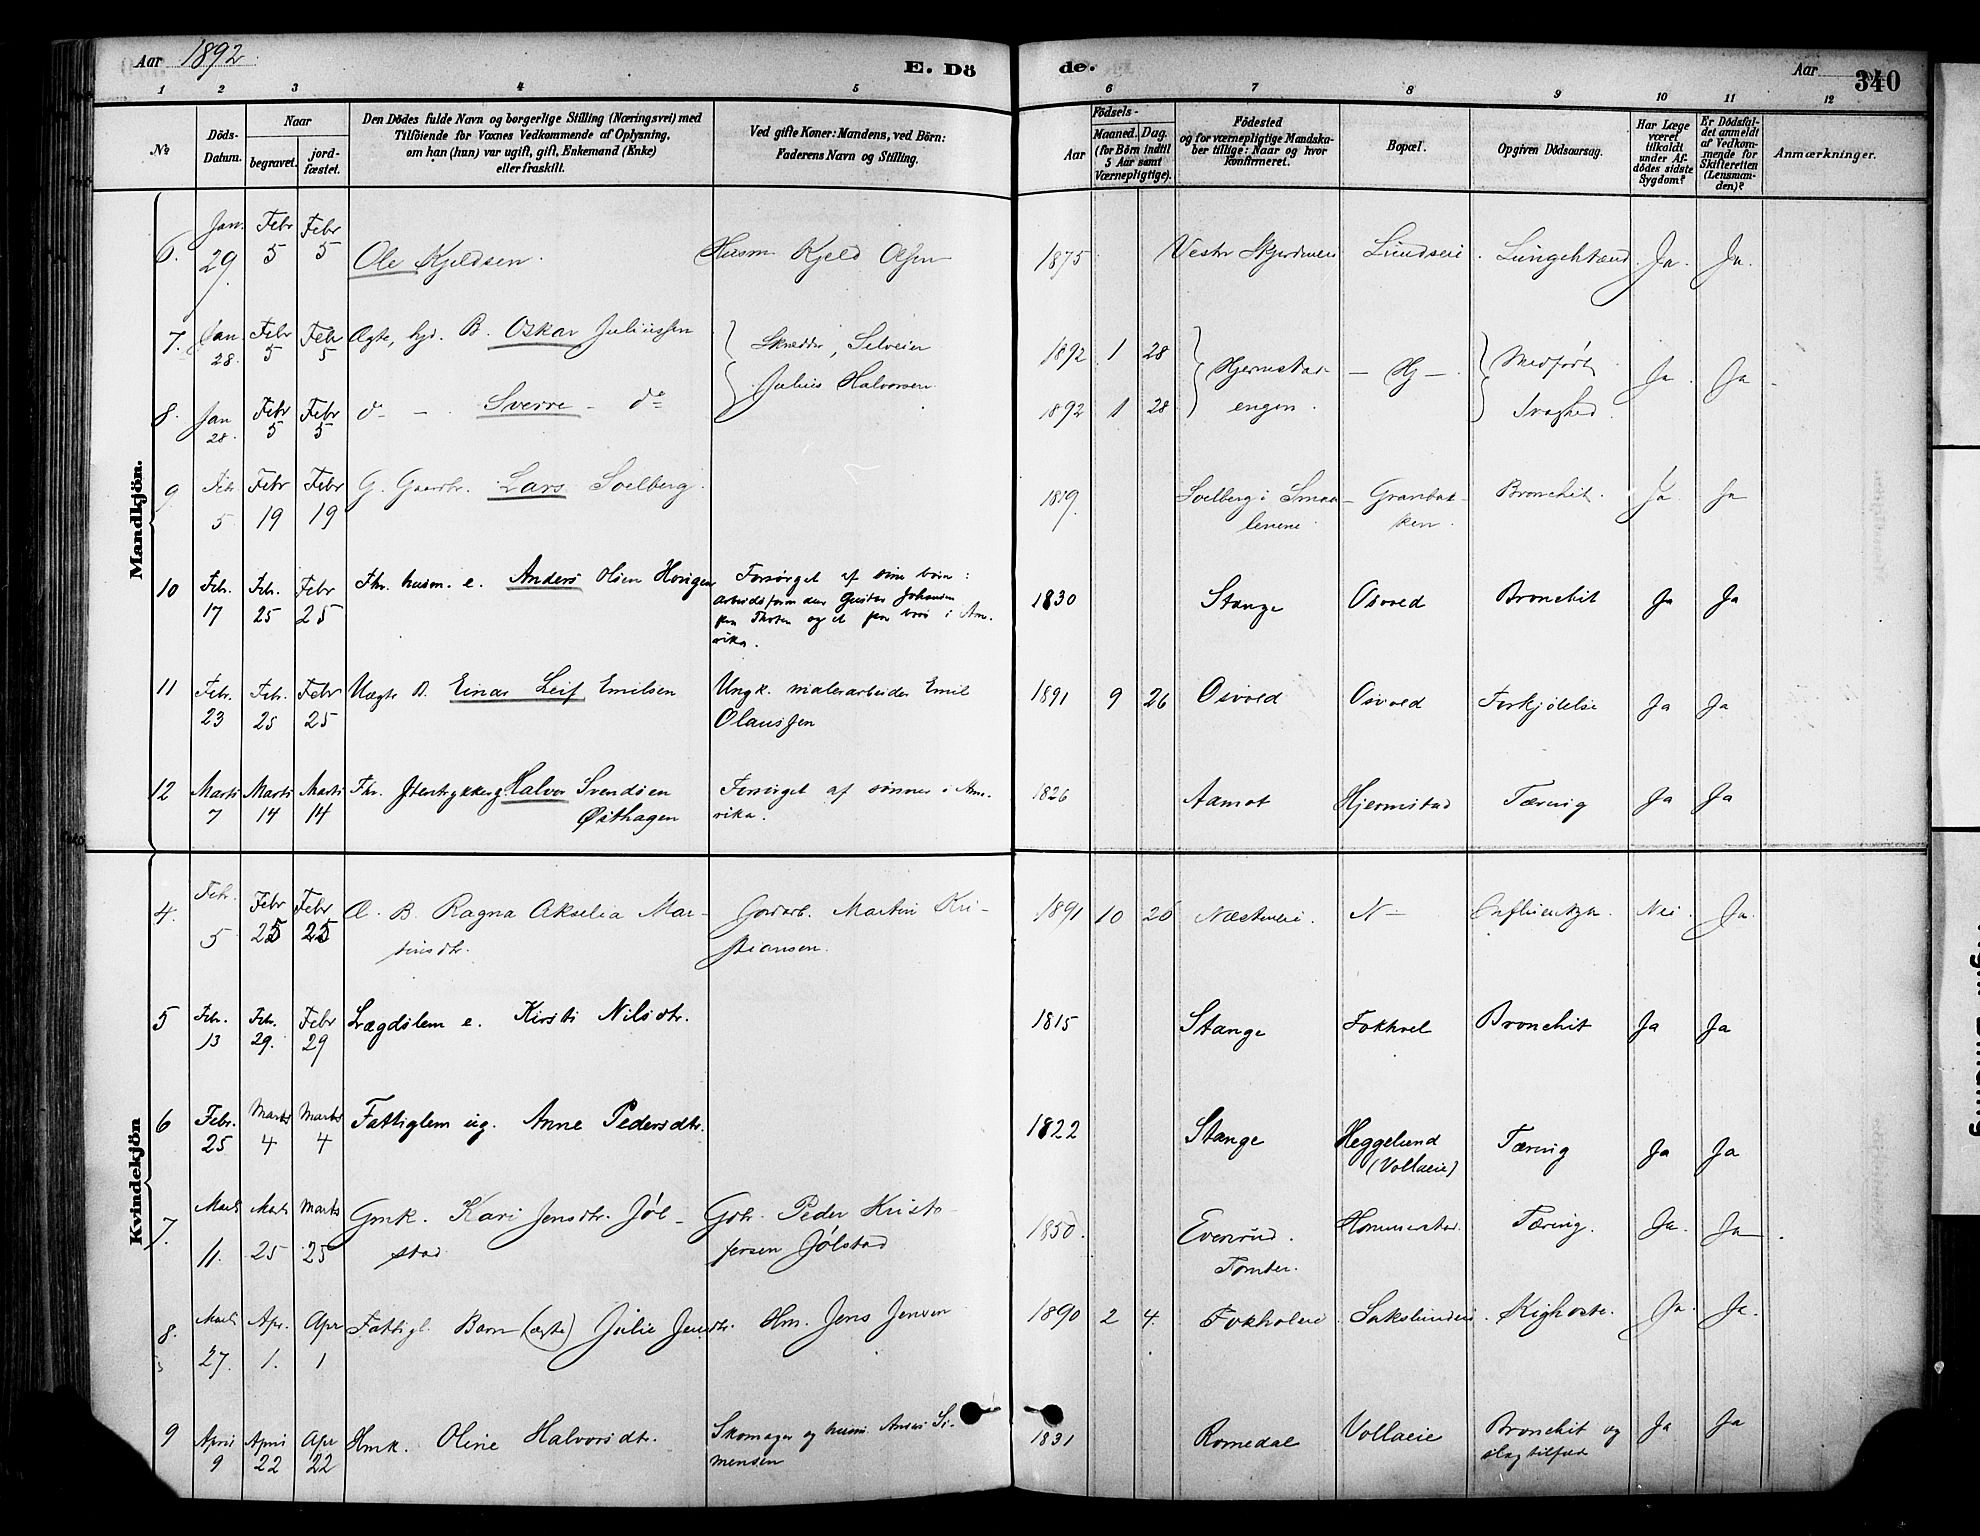 Aar 1892
E. Dö
de.
Aar
340
1 2 3 4 5 6 7 8 9 10 11 12
No
Döds-Datum.
Naar
begravet.
jordfæstet.
Den Dödes fulde Navn og borgerlige Stilling (Næringsvei) med
Tilföiende for Voxnes Vedkommende af Oplysning,
om han (hun) var ugift, gift, Enkemand (Enke)
eller fraskilt.
Ved gifte Koner: Mandens, ved Börn:
Faderens Navn og Stilling.
Födsels-
Aar
Maaned. Dag.
(for Börn indtil
5 Aar samt
Værnepligtige).
Födested
og for værnepligtige Mandska-
ber tillige: Naar og hvor
konfirmeret.
Bopæl.
Opgiven Dödsaarsag.
Har Læge
været
tilkaldt
under Af-
dödes sidste
Sygdom?
Er Dödsfal-
det anmeldt
af Vedkom-
mende for
Skifteretten
(Lensman-
den)?
Anmærkninger.
Mandkjön.
6. Jan. 29. Febr 5 Febr 5 Ole Kjeldsen. Husm Kjeld Olsen 1875 Vestr Lundseie Ja. Ja.
7. Jan. 28. Febr 5 Febr 5 Ægte, B. Oskar Juliussen Skrædder, Julius Halvorsen 1892 1 28 Hjermstad- engen. - Hj - Medfødt Svaghed. Ja. Ja
8. Jan 28. Febr 5 Febr 5 do - Sverre - do 1892 1 28
9 Febr 5. Febr 19 Febr 19 G. Gaardbr. Lars Solberg. 1819. Solberg i Smaa- lenene Granbak- ken. Bronchit. Ja Ja
10 Febr. 17 Febr. 25 Febr 25 Fhv. husm. e. Anders Olsen Horigen Forsørget af sine børn: arbeidsformand Gustav Johansen paa Thoten og et par børn i Ame- rika. 1830 Stange Osvold Bronchit Ja Ja
11 Febr. 23 Febr. 25 Febr 25 Uægte B. Einar Leif Emilsen Ungk. malerarbeider Emil Olaussen 1891 9 26 Osvold Osvold Forkjølelse Ja Ja
12 Marts 7 Marts 14 Marts 14 Fhv. Halvor Svendsen Østhagen Forsørget af sønner i Ame- rika. 1826 Aamot Hjermstad Tæring Ja Ja
Kvindekjön
4. Febr. 5 Febr 25 Febr 25 Æ. B. Ragna Akselia Mar- tinsdtr. Gardarb. Martin Kri- stiansen. 1891 10 26 Næstneie. N - Influentza. Nei. Ja.
5 Febr. 13 Febr. 29. Febr 29 Lægdslem e. Kirsti Nilsdtr. 1815 Stange Fokhol Bronchit Ja Ja
6 Febr. 25 Marts 4 Marts 4 Fattiglem ug. Anne Pedersdtr. 1822 Stange Heggelund (Vollaeie) Tæring Ja Ja
7. Marts 11. Marts 25 Marts 25 Gmk. Kari Jensdtr. Jøl- stad Gbr. Peder Kristo- fersen Jølstad 1850. Evenrud. Tomter. Hommerstad. Tæring. Ja. Ja.
8. Marts 27. Apr. 1. Apr 1 Fattigl. Barn (ægte) Julie Jensdtr. Hm. Jens Jensen 1890 2 4. Fokholeie. Sakslundeie. Kighoste. Ja. Ja.
9 April 9 April 22 Apr 22 Hmk. Oline Halvorsdtr. Skomager og husm. Anders Si- mensen 1831 Romedal Vollaeie Bronchit og slagtilfæld Ja Ja